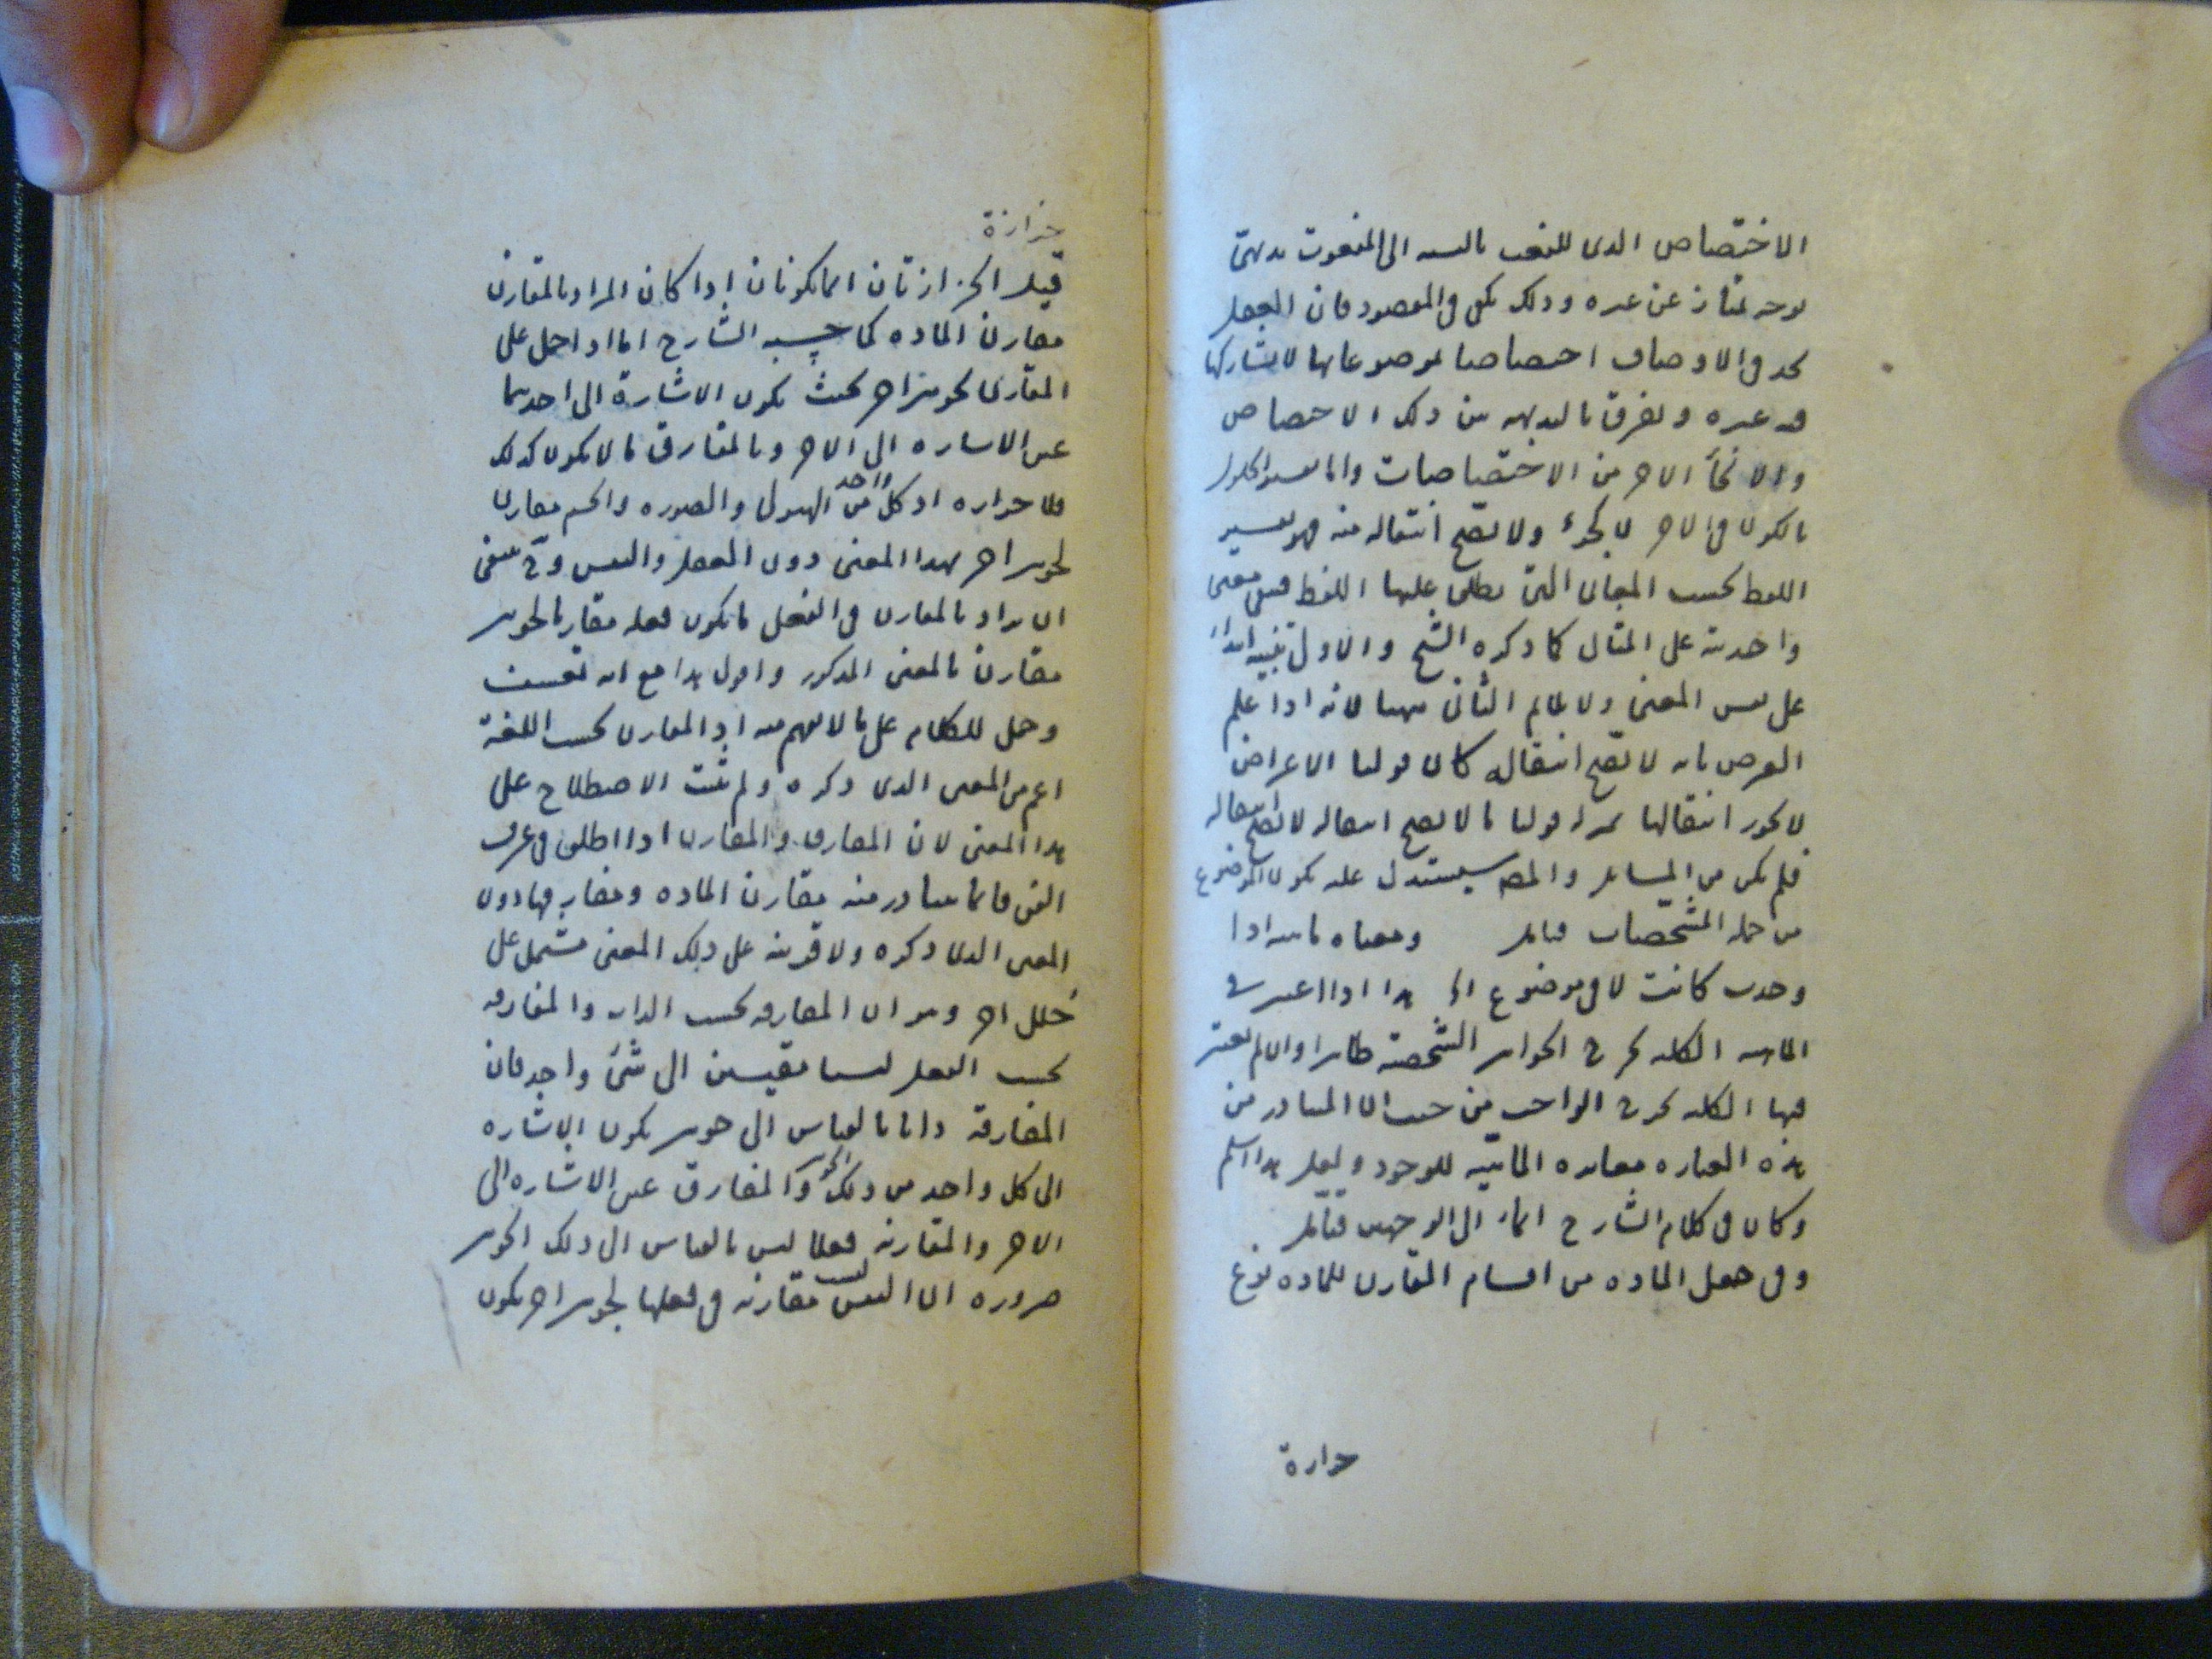 الاختصاص الذى للنعت بالنسبه الى المنعوت بديهى
بوجه يمتاز عن غيره وذلك يكفى فى المقصود فان العقل
يجد فى الاوصاف اختصاصا لموضوعاتها لا يشاركها
فيه غيره ويفرق بالبديهه بين ذلك الاختصاص
والانحآء الاخر من الاختصاصات واما تفسير الحلول
بالكون فى الاخر لا كجزء ولا يصح انتقاله منه فهو تفسير
اللفظ بحسب المعانى التى يطلق عليها اللفظ معنى
واحد على المثال كما ذكره الشيخ والاول تنبيه
على نفس المعنى ولا الثانى لانه اذا علم
العرض بانه لا يصح انتقاله كان قولنا الاعراض
لا يجوز انتقالها بمنزله قولنا ما لا يصح انتقاله لا يصح انتقاله
فلم يكن من المسائل والمصـ سيستدل عليه بكون الموضوع
من جمله المشخصات فتامل ومعناه ماهيه اذا
وجدت كانت لا فى موضوع الخ هذا اذا اعتبر فى
الماهيه الكليه يخرج الجواهر الشخصيه ظاهرا وان لم يعتبر
فيها الكليه يخرج الواجب من حيث ان المتبادر من
هذه العباره مغايره الماهيّه للوجود ولعل هذا اسلم
وكان فى كلام الشارح ايماء الى الوجهين فتامل
وفى جعل الماده من اقسام المقارن للماده نوع
حزازة
حزازة
قيل الحزازتان انما يكونان اذا كان المراد بالمقارن
مقارن الماده كما حسبه الشارح اما اذا حمل على
المقارن لجوهر اخر بحيث يكون الاشارة الى احدهما
عين الاشاره الى الاخر وبالمفارق ما لا يكون كذلك
فلا حزازه اذ كل واحد من الهيولى والصوره والجسم مقارن
لجوهر اخر بهذا المعنى دون العقل والنفس وح ينبغى
ان يراد بالمقارن فى الفعل ما يكون فعله مقارنا لجوهر
مقارن بالمعنى المذكور واقول هذا مع انه تعسف
وحمل للكلام على ما لا يفهم منه اذ المقارن بحسب اللغة
اعم من المعنى الذى ذكره ولم يثبت الاصطلاح على
هذا المعنى لان المفارق والمقارن اذا اطلق فى عرف
الفن فانما يتبادر منه مقارن الماده ومفارقها دون
المعنى الذى ذكره ولا قرينه على ذلك المعنى مشتمل على
خلل اخر وهو ان المفارقه بحسب الذات والمفارقه
بحسب الفعل ليسا مقيسين الى شئ واحد فان
المفارقة ذاتا بالقياس الى جوهر يكون الاشاره
الى كل واحد من ذلك الجوهر والمفارق عين الاشاره الى
الاخر والمقارنه فعلا ليس بالقياس الى ذلك الجوهر
ضروره ان النفس ليست مقارنه فى فعلها لجوهر اخر يكون